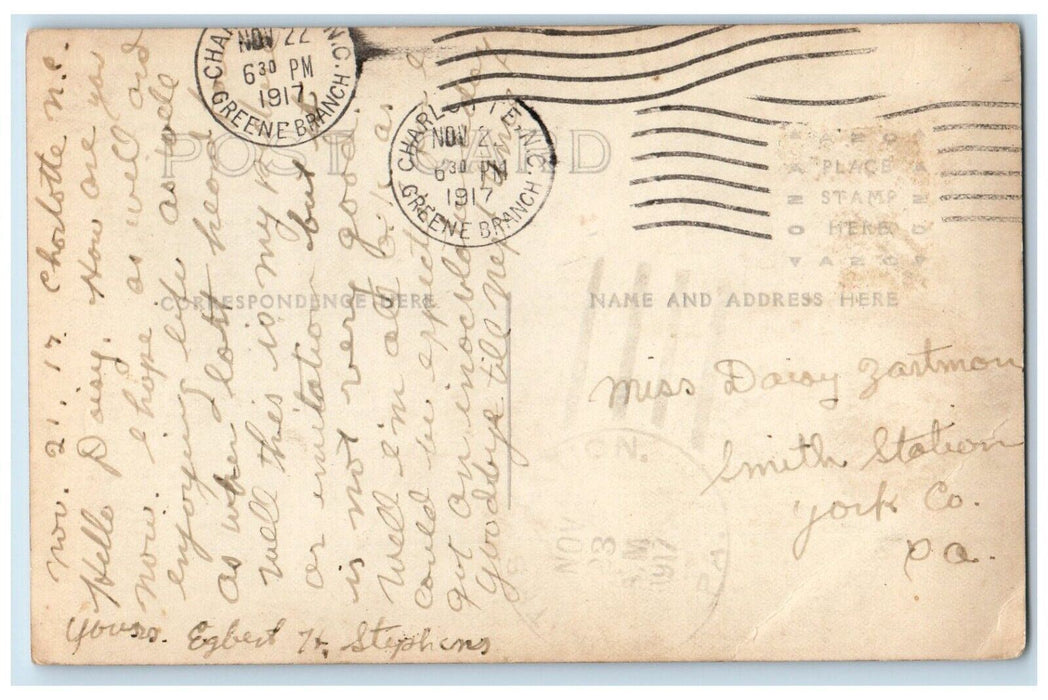 Nov. 21. 17. Charlotte N.C.
Hello Daisy. How are you
now. I hope as well and
enjoying life as well
as when I last heard
Well this is my
or imitation but it
is not very good
Well I'm all O.K. as
could be expected
got an inoculation
Goodbye till next
Yours. Egbert H. Stephens
CHARLOTTE, N.C.
NOV 22
6 30 PM
1917
GREENE BRANCH
CHARLOTTE, N.C.
NOV 2
6 30 PM
1917
GREENE BRANCH
POST CARD
AZO
PLACE
STAMP
HERE
AZO
CORRESPONDENCE HERE
NAME AND ADDRESS HERE
Miss Daisy Zartman
Smith Station
York Co.
Pa.
ON.
NOV
3
1917
PA.